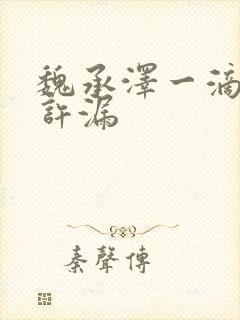 魏承澤一滴
許漏
秦聲傳